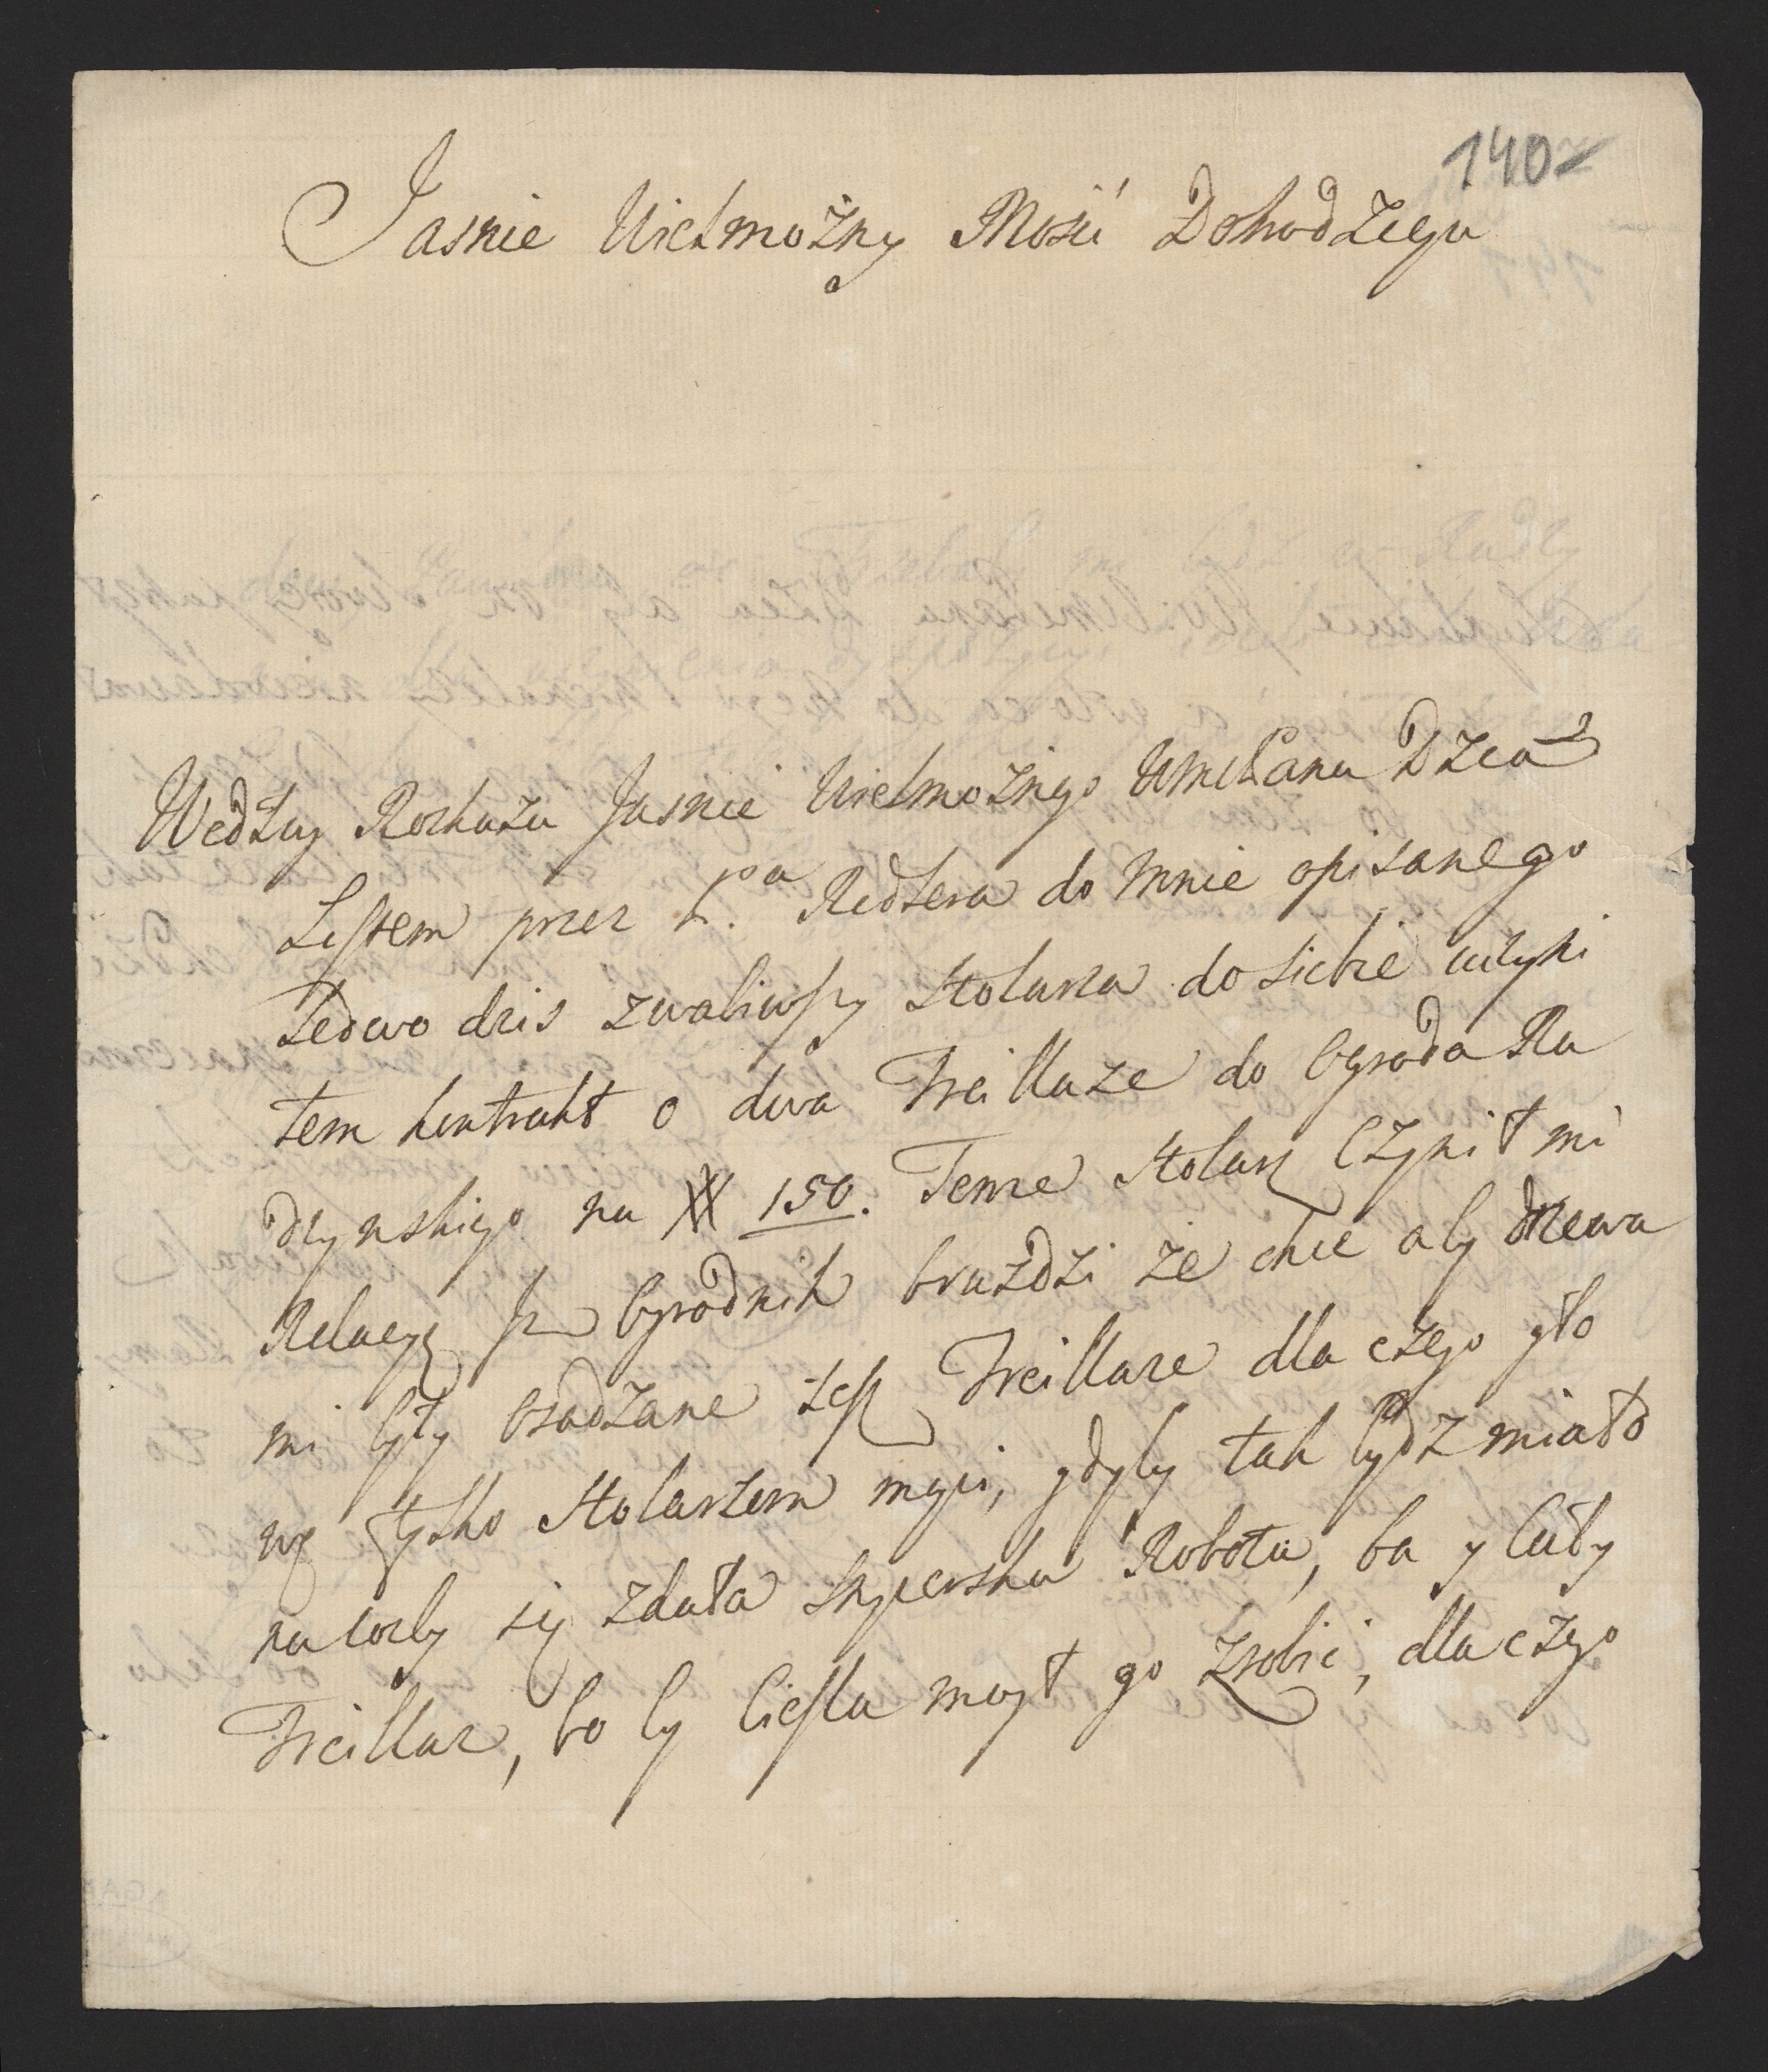 140
Jasnie Wielmożny Mośći Dobrodzieju
Wedłuy Roskazu Jasnie Wielmożnego WmcPana Dzieia
Listem przez P.a Redlera do mnie opisanego
Ledwo dzis zwabiwszy Stolarza do siebie uczyni
łem kontrakt o dwa Treillaze do Ogroda Ra
dzynskiego na # 150. Tenze Stolarz Czynił mi
Relacyę Ogrodnik bruździ że chce aby drzewa
mi były Osadzane też Treillaze dla czego
tylko Stolarzem moyi, gdyby tak bydz miało
na coby się zdała Snycerska Robota, ba y Cały
Treillaz, bo by Ciesla mogł go zrobić, dla czego